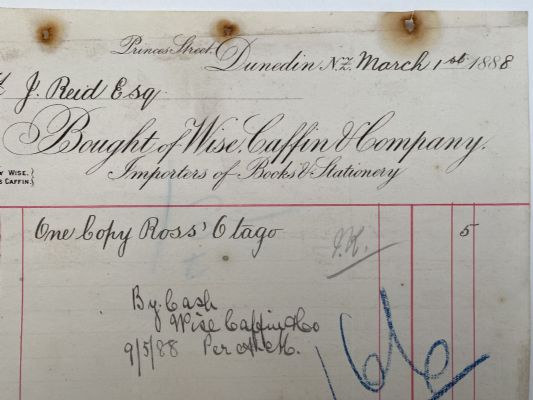 Princes Street,
Dunedin N.Z. March 1st 1888
J. Reid Esq
Bought of Wise, Caffin & Company.
WISE.
CAFFIN.
Importers of Books & Stationery
One Copy Ross' Otago 5
By Cash
Wise Caffin & Co
9/5/88 Per